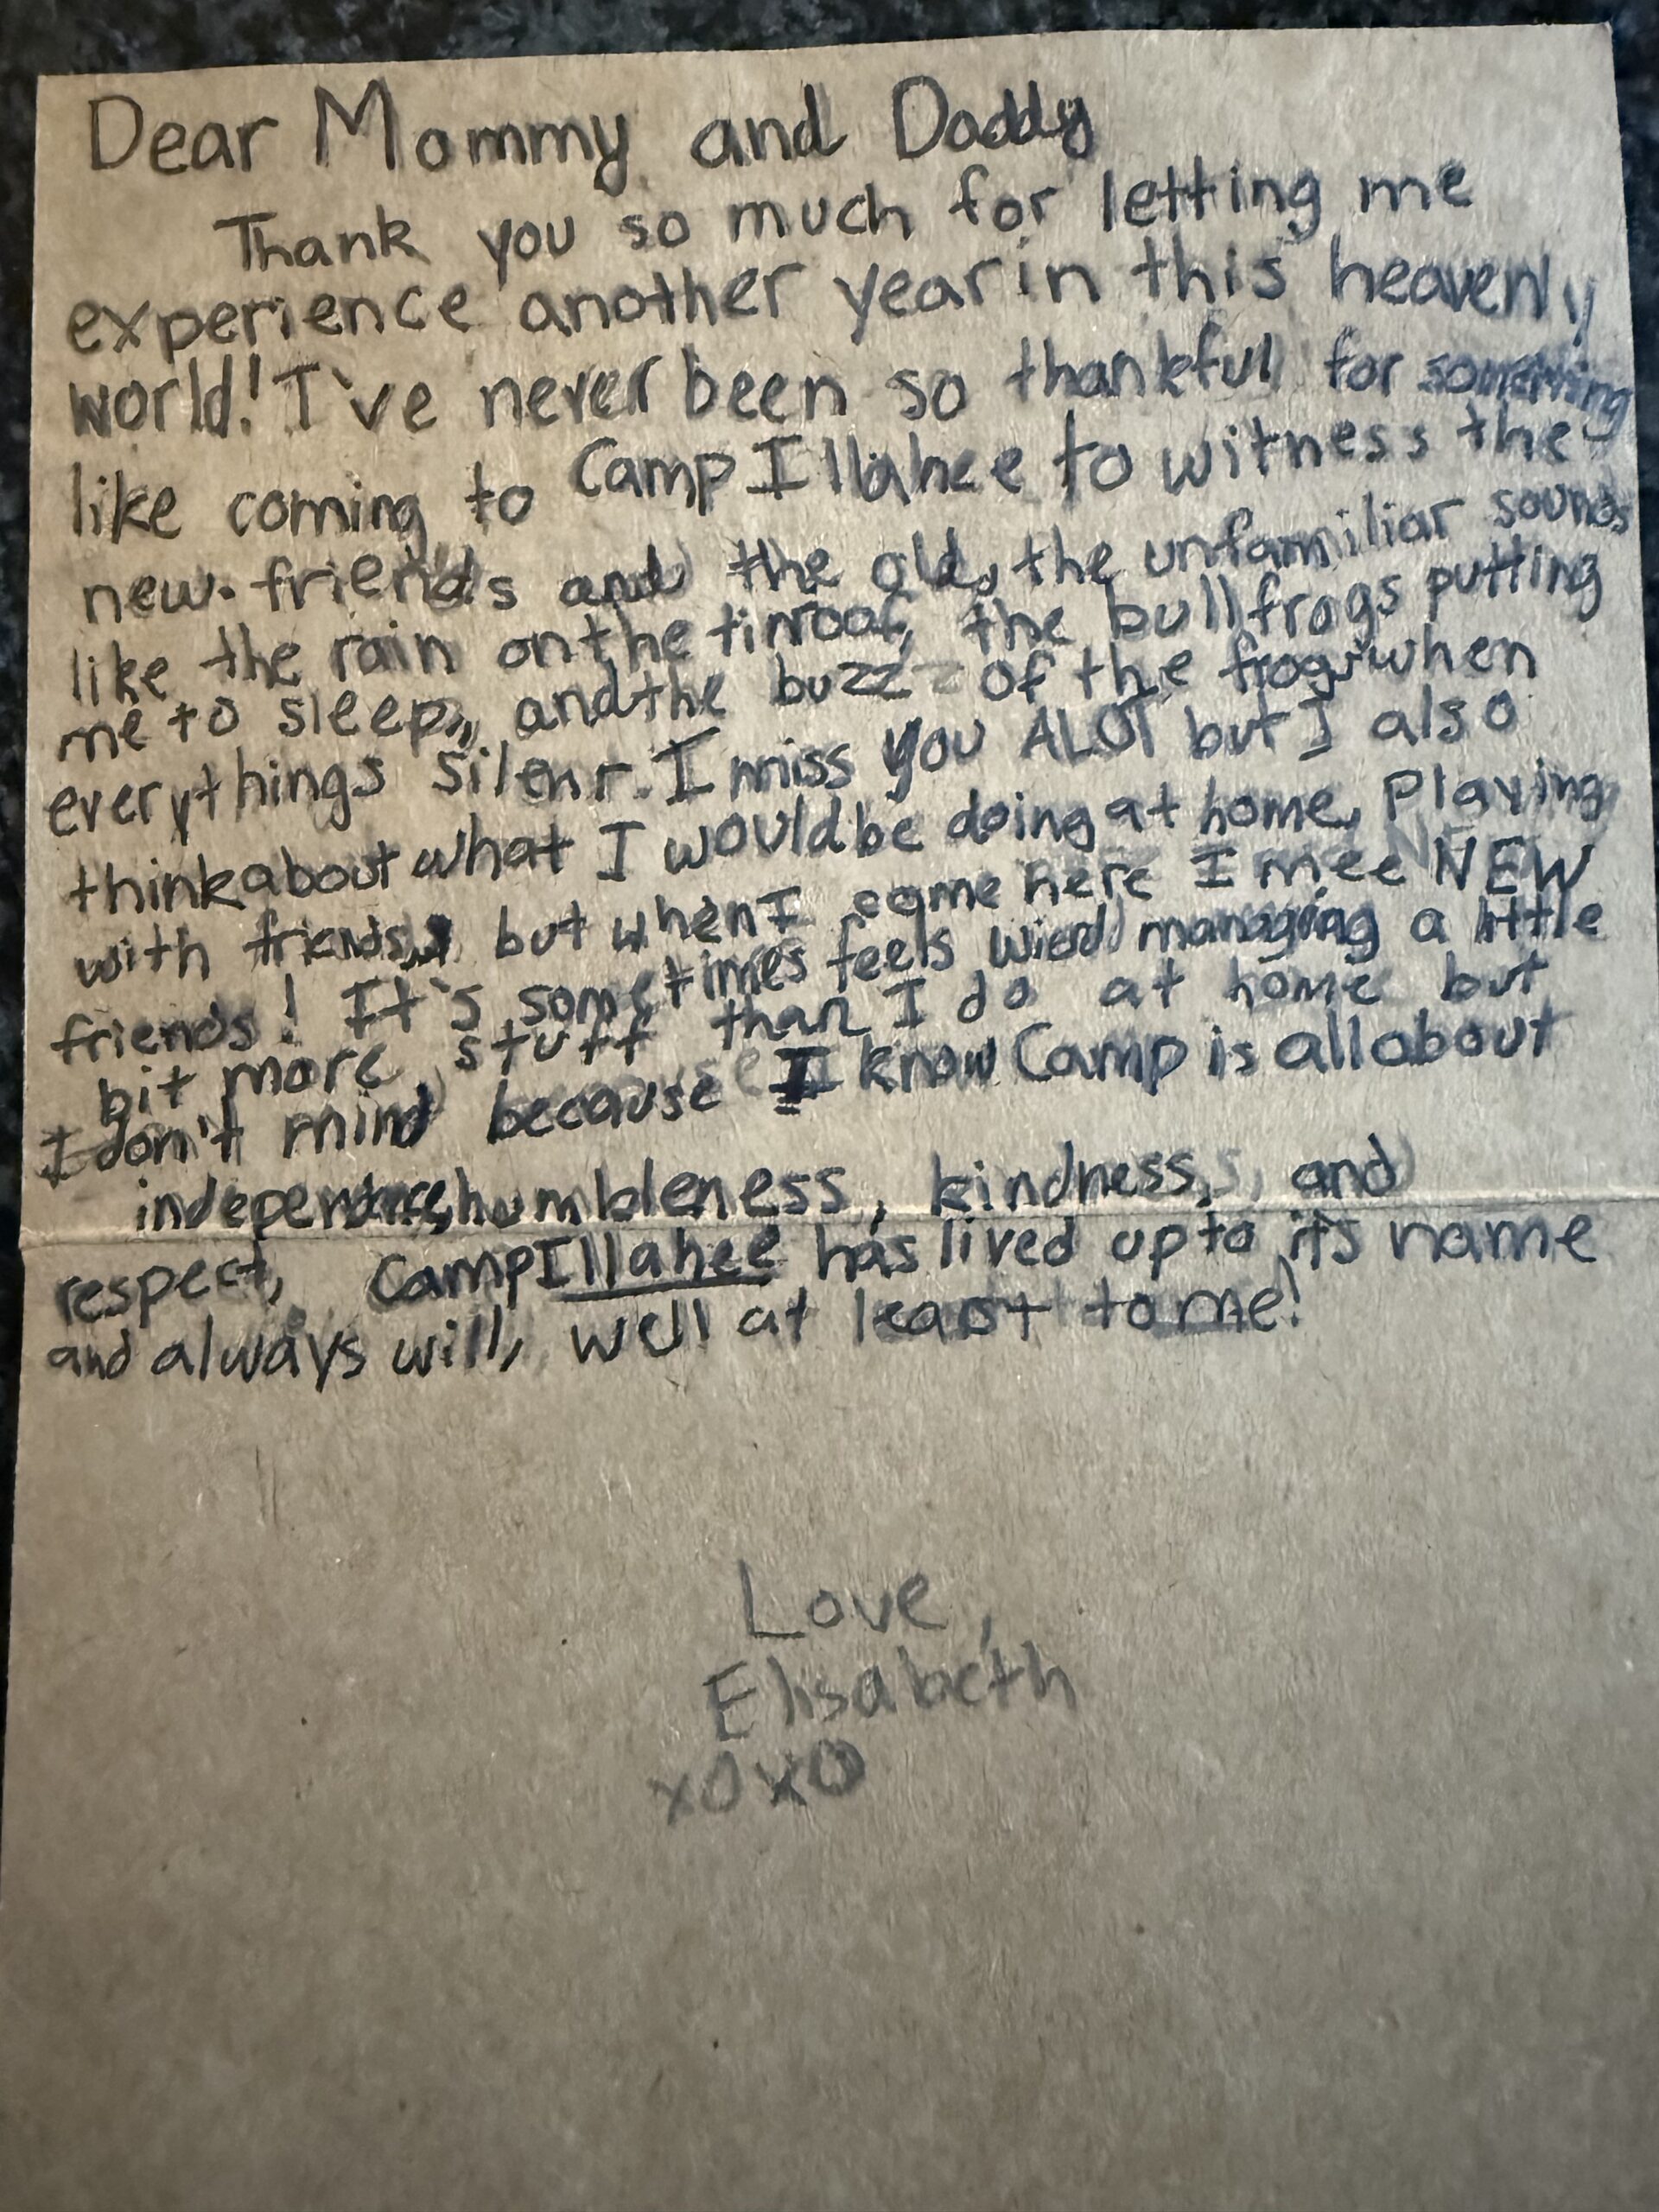 Dear Mommy and Daddy
Thank you so much for letting me
experience another year in this heavenly
world! I've never been so thankful for something
like coming to Camp Illahee to witness the
new friends and the old, the unfamiliar sounds
like the rain on the tin roof, the bullfrogs putting
me to sleep, and the buzz of the frogs when
everythings silent. I miss you ALOT but I also
think about what I would be doing at home, Playing
with friends, but when I come here I mee NEW
friends! It's sometimes feels wierd managing a little
bit more stuff than I do at home but
I don't mind because I know Camp is all about
independence, humbleness, kindness, and
respect, Camp Illahee has lived up to its name
and always will, well at least to me!
Love,
Elisabeth
xoxo